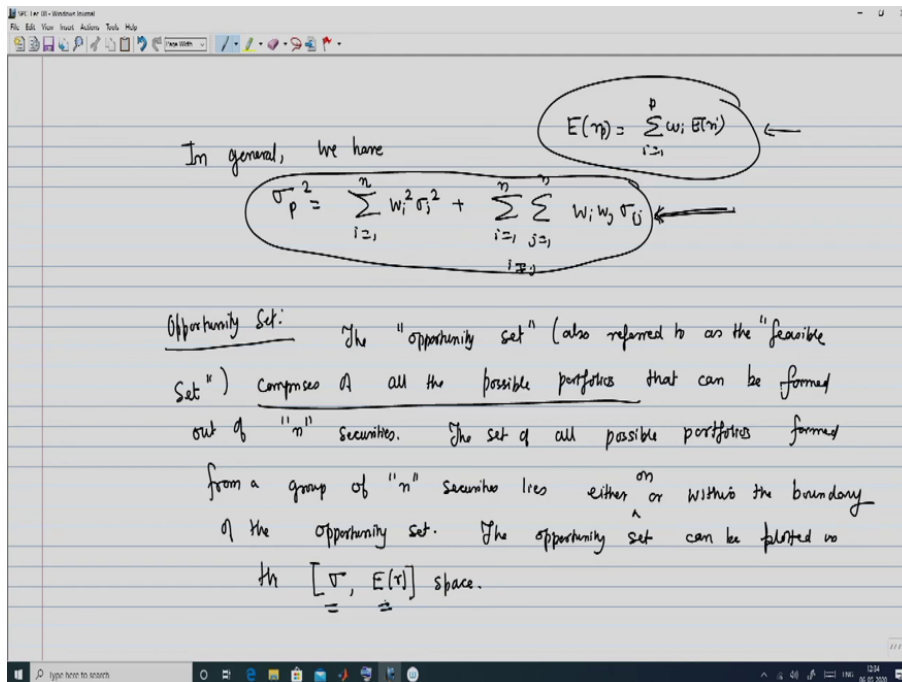 SPC Lec 08 - Windows Journal
File Edit View Insert Actions Tools Help
Page Width
E(r_p) = \sum_{i=1}^{p} w_i E(r_i)
In general, we have
\sigma_p^2 = \sum_{i=1}^{n} w_i^2 \sigma_i^2 + \sum_{i=1}^{n} \sum_{j=1}^{n} w_i w_j \sigma_{ij}
i≠j
Opportunity Set: The "opportunity set" (also referred to as the "feasible
Set") comprises of all the possible portfolios that can be formed
out of "n" securities. The set of all possible portfolios formed
from a group of "n" securities lies either on or within the boundary
of the opportunity set. The opportunity set can be plotted in
th [σ, E(r)] space.
Type here to search
ENG
12:04
06-05-2020